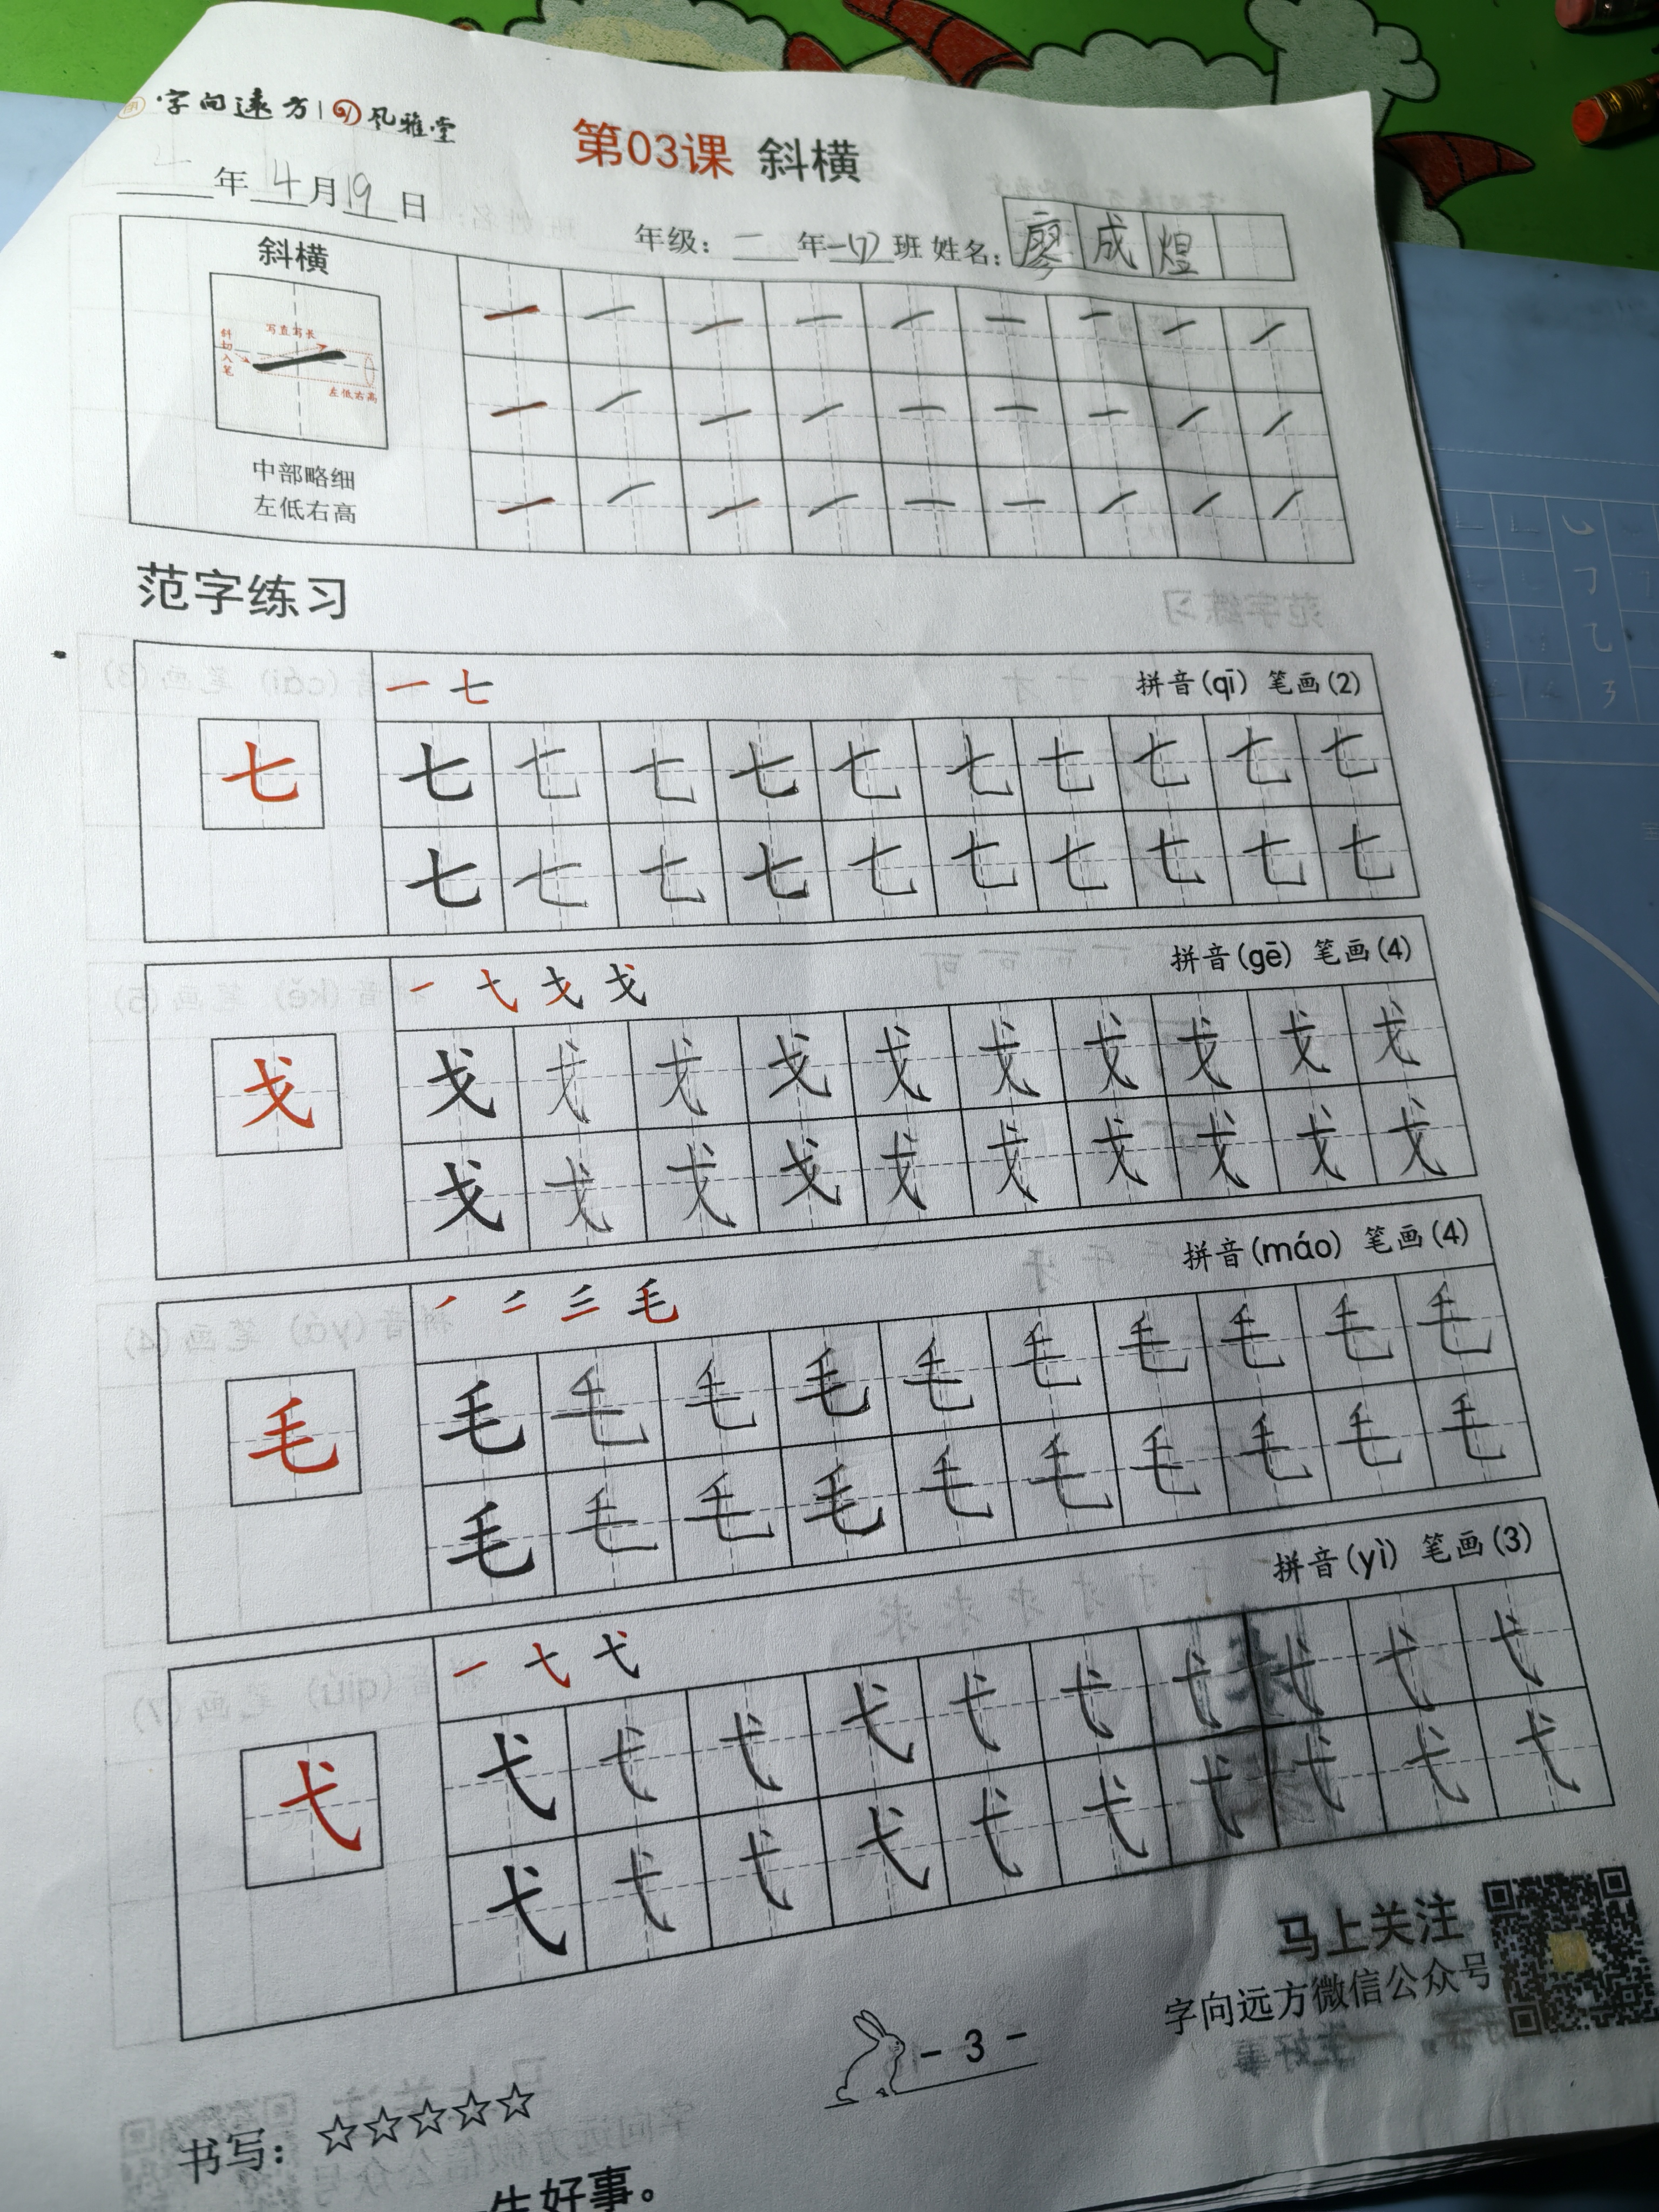 字向远方 风雅堂
第03课 斜横
年4月19日
年级：一年一(7)班 姓名：廖成煜
斜横
斜切入笔
写直写长
左低右高
中部略细
左低右高
一 一 一 一 一 一 一 一 一
一 一 一 一 一 一 一 一 一
一 一 一 一 一 一 一 一 一
范字练习
一 七 拼音(qī) 笔画(2)
七
七 七 七 七 七 七 七 七 七 七
七 七 七 七 七 七 七 七 七 七
拼音(gē) 笔画(4)
戈
戈 戈 戈 戈 戈 戈 戈 戈 戈 戈
戈 戈 戈 戈 戈 戈 戈 戈 戈 戈
毛 拼音(máo) 笔画(4)
毛
毛 毛 毛 毛 毛 毛 毛 毛 毛 毛
毛 毛 毛 毛 毛 毛 毛 毛 毛 毛
弋 拼音(yì) 笔画(3)
弋
弋 弋 弋 弋 弋 弋 弋 弋 弋 弋
弋 弋 弋 弋 弋 弋 弋 弋 弋 弋
马上关注
字向远方微信公众号
- 3 -
书写：☆☆☆☆☆
生好事。